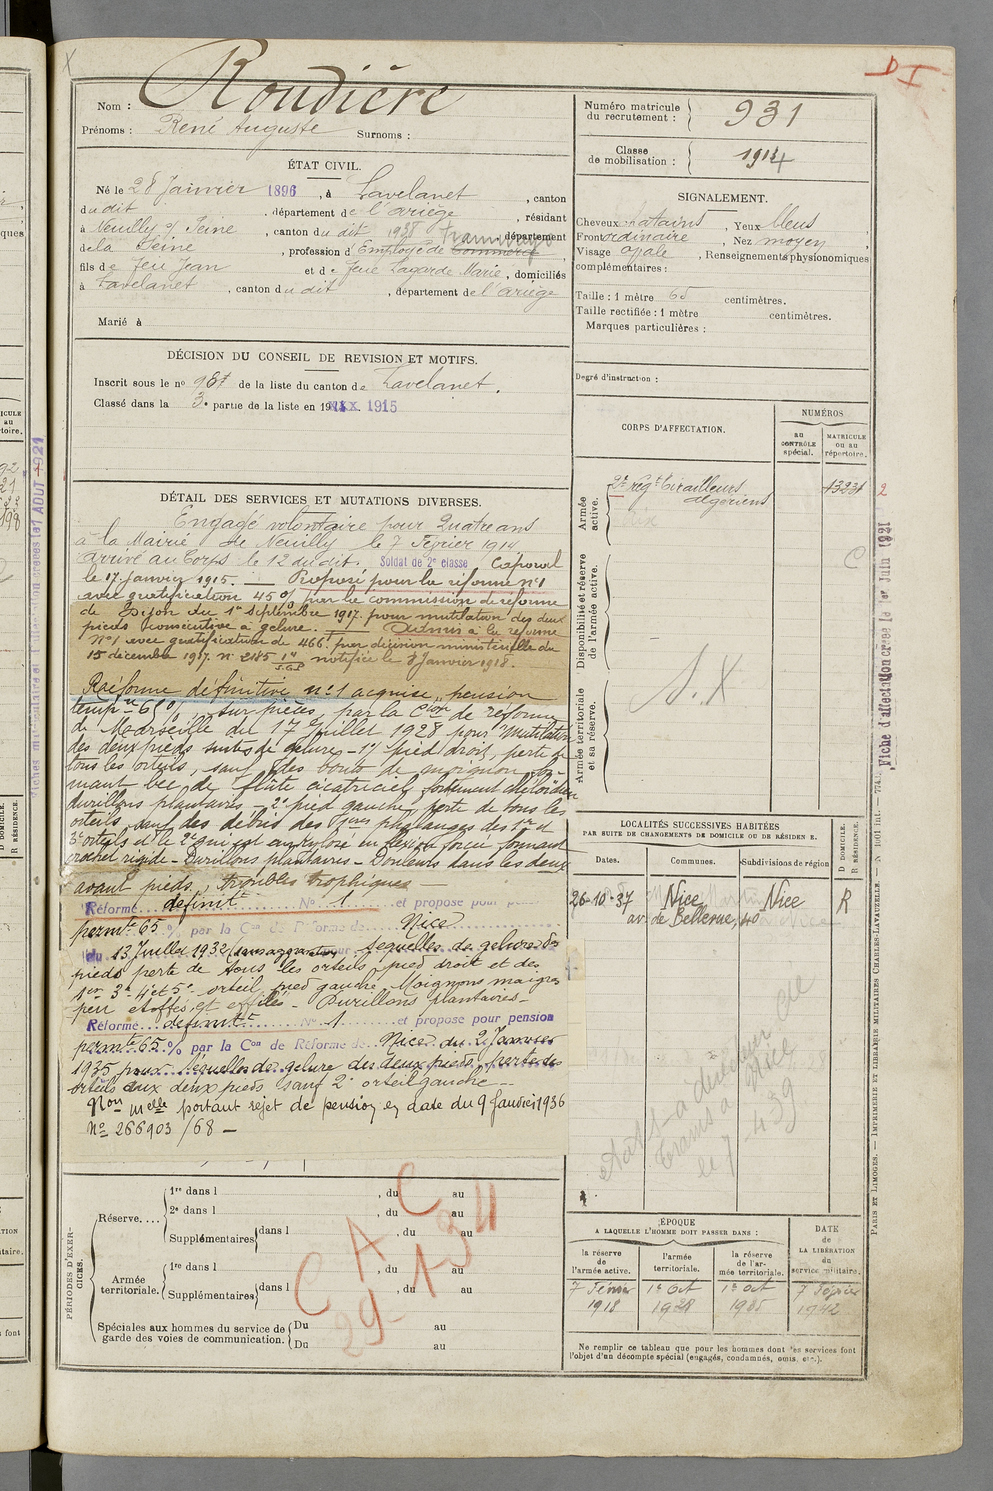 Roudière
Nom :
Prénoms : René Auguste Surnoms :
ÉTAT CIVIL.
Né le 28 Janvier 1896, à Lavelanet, canton
du dit, département de l'ariège, résidant
à Neuilly s/ Seine, canton du dit 1938 tramways, département
de la Seine, profession d'Employé de Commerce
fils de feu Jean et de feue Lagarde Marie, domiciliés
à Lavelanet, canton du dit, département de l'ariège
Marié à
DÉCISION DU CONSEIL DE REVISION ET MOTIFS.
Inscrit sous le no de la liste du canton de Lavelanet.
Classé dans la 3e partie de la liste en 19 1915
DÉTAIL DES SERVICES ET MUTATIONS DIVERSES.
Engagé volontaire pour Quatre ans
à la Mairie de Neuilly le 7 Février 1914
arrivé au Corps le 12 du dit. Soldat de 2e classe Caporal
le 17 Janvier 1915. — Proposé pour la réforme no 1
avec gratification 45% par la commission de réforme
de Dijon du 1er Septembre 1917. pour mutilation des deux
pieds consécutive à gelure. — Admis à la réforme
No 1, avec gratification de 466. par décision ministérielle du
15 décembre 1917. no 2185 notifiée le 8 Janvier 1918.
Réforme définitive no 1 acquise, pension
sur pièces par la Cion de réforme
de Marseille du 17 Juillet 1928 pour "Mutilation
des deux pieds suites de gelures – 1o/ pied droit, perte de
tous les orteils, sauf des bouts de moignon for-
mant bec de flûte cicatriciel, fortement chéloïdien
durillons plantaires – 2o pied gauche perte de tous les
orteils sauf des débris des 1ères phalanges des 1er et
3e orteils et le 2e qui est ankylosé en flexion forcée formant
crochet rigide – Durillons plantaires – Douleurs dans les deux
avant pieds, troubles trophiques —
Réformé définit No 1 et propose pour
permte 65 % par la Con de Réforme de Nice
du 13 Juillet 1932 séquelles de gelures des
pieds perte de tous les orteils pied droit et des
1er 3e 4e et 5e orteil pied gauche, Moignons maigres
peu étoffés et effilés – Durillons plantaires –
Réformé définitt No 1 et propose pour pension
permte 65 % par la Con de Réforme de Nice du 2 Janvier
1935 pour Séquelles de gelure des deux pieds, perte des
orteils aux deux pieds sauf 2e orteil gauche —
Non melle portant rejet de pension en date du 9 Janvier 1936
No 266903 /68 —
PÉRIODES D'EXERCICES.
Réserve....
1re dans l , du au
2e dans l , du au
Supplémentaires dans l , du au
Armée territoriale.
1re dans l , du au
Supplémentaires dans l , du au
Spéciales aux hommes du service de garde des voies de communication.
Du au
Du au
C A C
29-1-34
D I
Numéro matricule du recrutement : 931
Classe de mobilisation : 1914
SIGNALEMENT.
Cheveux chatains, Yeux bleus
Front ordinaire, Nez moyen
Visage ovale, Renseignements physionomiques
complémentaires :
Taille : 1 mètre 65 centimètres.
Taille rectifiée : 1 mètre centimètres.
Marques particulières :
Degré d'instruction :
CORPS D'AFFECTATION.
NUMÉROS
au CONTRÔLE spécial.
MATRICULE ou au répertoire.
Armée active.
2e régt tirailleurs
algériens
Disponibilité et réserve de l'armée active.
Armée territoriale et sa réserve.
S. X
C
2
Fiche d'affectation créée le 1er Juin 1921
LOCALITÉS SUCCESSIVES HABITÉES
PAR SUITE DE CHANGEMENTS DE DOMICILE OU DE RÉSIDENCE.
Dates.
Communes.
Subdivisions de région
D DOMICILE.
R RÉSIDENCE.
26-10-37 Nice Nice R
av. de Bellevue, 40
ÉPOQUE
A LAQUELLE L'HOMME DOIT PASSER DANS :
DATE de LA LIBÉRATION du service militaire.
la réserve de l'armée active.
l'armée territoriale.
la réserve de l'armée territoriale.
7 Février 1918
1er Oct 1928
1er Oct
7 Février 1942
Ne remplir ce tableau que pour les hommes dont les services font
l'objet d'un décompte spécial (engagés, condamnés, omis, etc.).
PARIS ET LIMOGES. — IMPRIMERIE ET LIBRAIRIE MILITAIRES CHARLES-LAVAUZELLE.